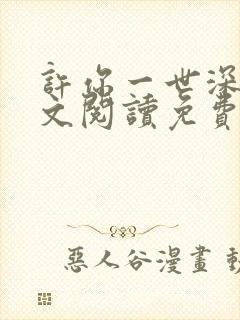 許你一世深
文閱讀免費
惡人谷漫畫